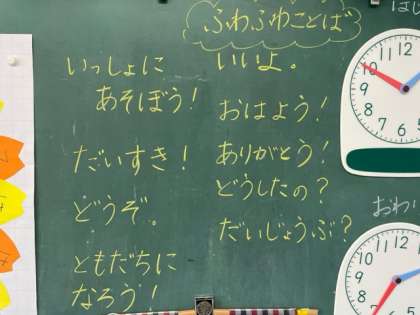 ふわふわことば
いっしょに
あそぼう!
だいすき!
どうぞ。
ともだちに
なろう!
いいよ。
おはよう!
ありがとう!
どうしたの?
だいじょうぶ?
はじ
10
9
8
7
6
5
4
おわり
12
11
10
9
8